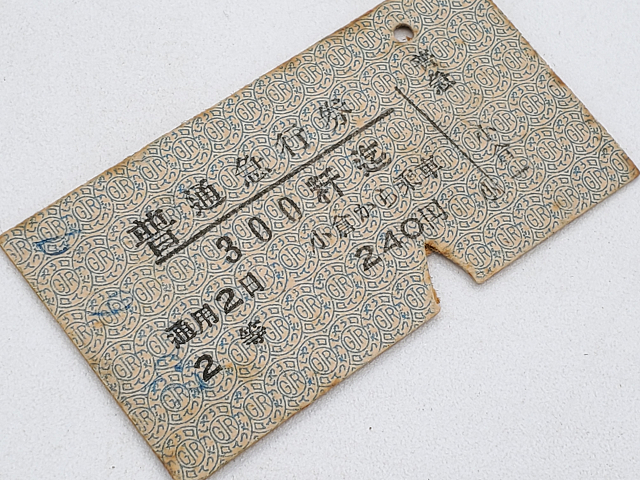 普通急行券
300粁迄
小倉から乗車
通用2日
240円
2等
普急
小倉